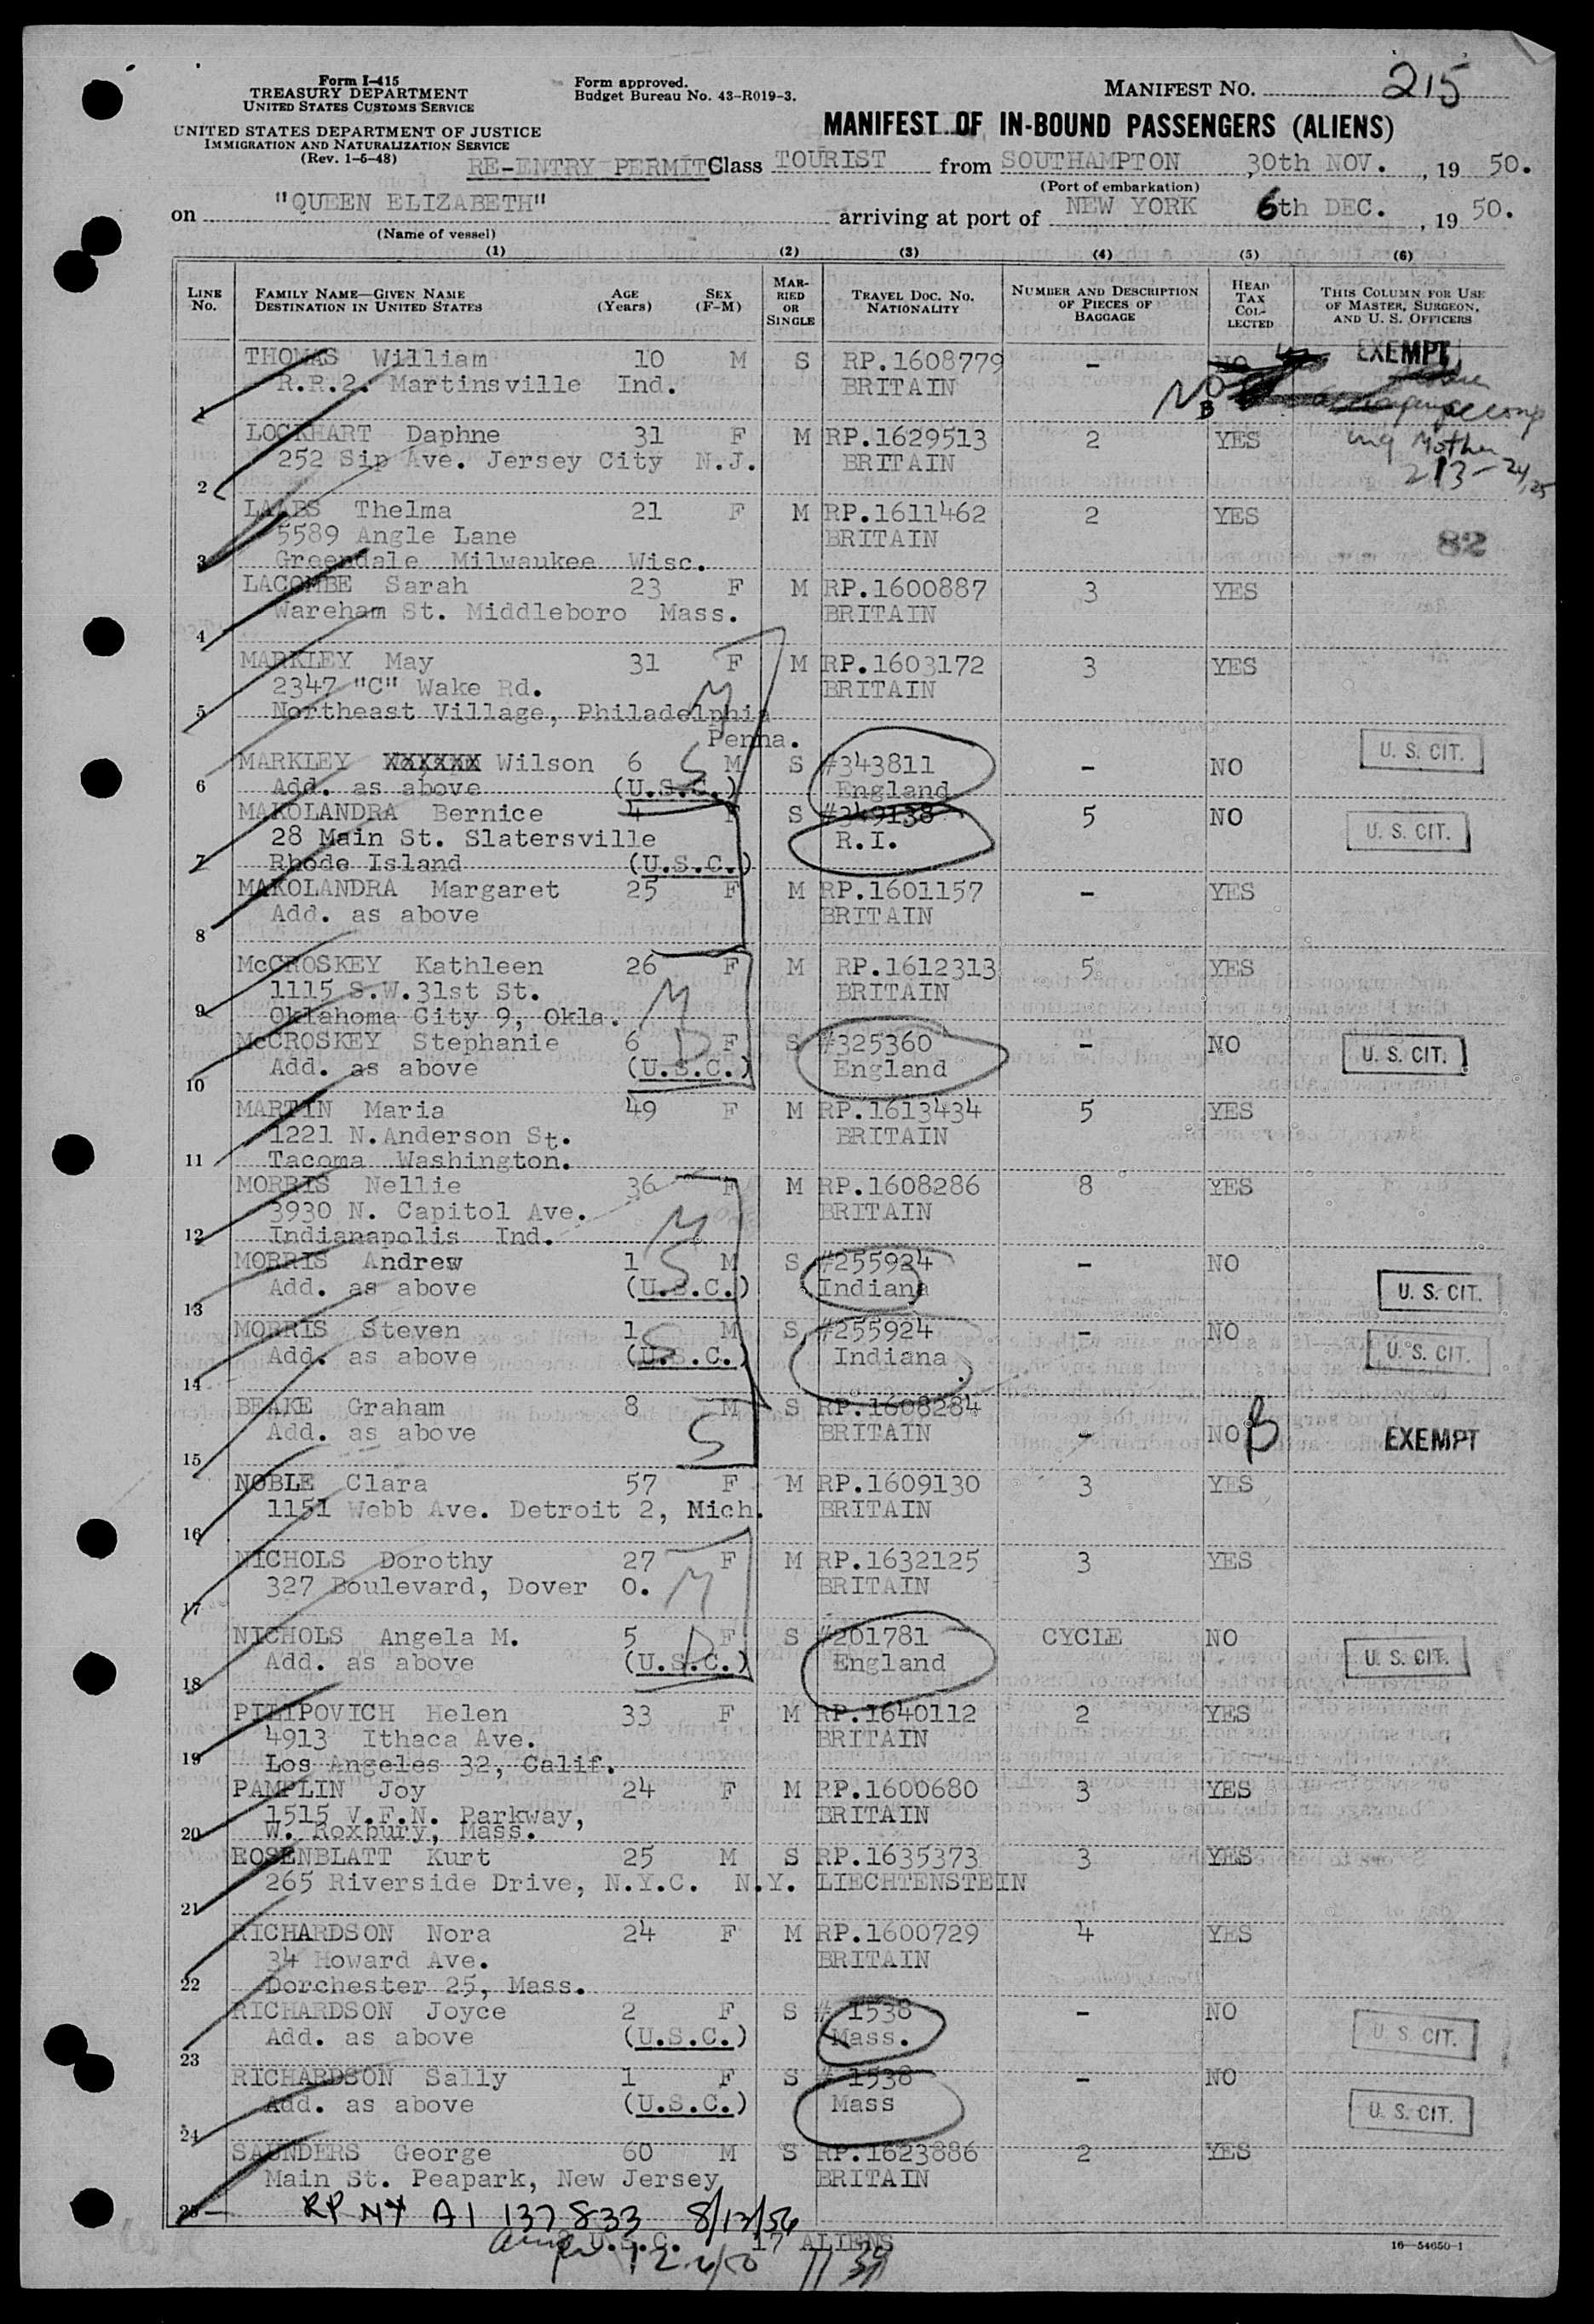 Form I-415
TREASURY DEPARTMENT
UNITED STATES CUSTOMS SERVICE
UNITED STATES DEPARTMENT OF JUSTICE
IMMIGRATION AND NATURALIZATION SERVICE
(Rev. 1-5-48)
Form approved.
Budget Bureau No. 43-R019-3.
MANIFEST NO. 215
MANIFEST OF IN-BOUND PASSENGERS (ALIENS)
RE-ENTRY PERMIT Class TOURIST from SOUTHAMPTON, 30th NOV., 19 50.
(Port of embarkation)
on "QUEEN ELIZABETH" arriving at port of NEW YORK 6th DEC., 19 50.
(Name of vessel)
(1) (2) (3) (4) (5) (6)
LINE NO. FAMILY NAME—GIVEN NAME DESTINATION IN UNITED STATES AGE (Years) SEX (F-M) MARRIED OR SINGLE TRAVEL DOC. NO. NATIONALITY NUMBER AND DESCRIPTION OF PIECES OF BAGGAGE HEAD TAX COLLECTED THIS COLUMN FOR USE OF MASTER, SURGEON, AND U. S. OFFICERS
THOMAS William 10 M S RP.1608779 - NO EXEMPT
R.R.2. Martinsville Ind. BRITAIN NO
1 B
LOCKHART Daphne 31 F M RP.1629513 2 YES ing Mother
252 Sip Ave. Jersey City N.J. BRITAIN 213-24/25
2
LAABS Thelma 21 F M RP.1611462 2 YES
5589 Angle Lane BRITAIN 82
3 Greendale Milwaukee Wisc.
LACOMBE Sarah 23 F M RP.1600887 3 YES
Wareham St. Middleboro Mass. BRITAIN
4
MARKLEY May 31 F M RP.1603172 3 YES
2347 "C" Wake Rd. M BRITAIN
5 Northeast Village, Philadelphia
Penna.
MARKLEY XXXXXX Wilson 6 M S #343811 - NO U. S. CIT.
6 Add. as above (U.S.C.) S England
MAKOLANDRA Bernice 4 F S #349138 5 NO U. S. CIT.
28 Main St. Slatersville R.I.
7 Rhode Island (U.S.C.)
MAKOLANDRA Margaret 25 F M RP.1601157 - YES
Add. as above BRITAIN
8
McCROSKEY Kathleen 26 F M RP.1612313 5 YES
1115 S.W.31st St. M BRITAIN
9 Oklahoma City 9, Okla.
McCROSKEY Stephanie 6 D F S #325360 - NO U. S. CIT.
Add. as above (U.S.C.) England
10
MARTIN Maria 49 F M RP.1613434 5 YES
1221 N.Anderson St. BRITAIN
11 Tacoma Washington.
MORRIS Nellie 36 F M RP.1608286 8 YES
3930 N. Capitol Ave. M BRITAIN
12 Indianapolis Ind.
MORRIS Andrew 1 S M S #255924 - NO
Add. as above (U.S.C.) Indiana U. S. CIT.
13
MORRIS Steven 1 M S #255924 - NO
Add. as above (U.S.C.) S Indiana U. S. CIT.
14
BEAKE Graham 8 M S RP.1608284 - NO B EXEMPT
Add. as above S BRITAIN
15
NOBLE Clara 57 F M RP.1609130 3 YES
1151 Webb Ave. Detroit 2, Mich. BRITAIN
16
NICHOLS Dorothy 27 F M RP.1632125 3 YES
327 Boulevard, Dover O. M BRITAIN
17
NICHOLS Angela M. 5 F S #201781 CYCLE NO
Add. as above (U.S.C.) D England U. S. CIT.
18
PILIPOVICH Helen 33 F M RP.1640112 2 YES
4913 Ithaca Ave. BRITAIN
19 Los Angeles 32, Calif.
PAMPLIN Joy 24 F M RP.1600680 3 YES
1515 V.F.N. Parkway, BRITAIN
20 W. Roxbury, Mass.
ROSENBLATT Kurt 25 M S RP.1635373 3 YES
265 Riverside Drive, N.Y.C. N.Y. LIECHTENSTEIN
21
RICHARDSON Nora 24 F M RP.1600729 4 YES
34 Howard Ave. BRITAIN
22 Dorchester 25, Mass.
RICHARDSON Joyce 2 F S # 1538 - NO
Add. as above (U.S.C.) Mass. U. S. CIT.
23
RICHARDSON Sally 1 F S # 1538 - NO
Add. as above (U.S.C.) Mass U. S. CIT.
24
SAUNDERS George 60 M S RP.1623886 2 YES
Main St. Peapark, New Jersey BRITAIN
25 RP NY A1 137 833 8/13/56
U.S.C. 17 ALIENS
12/6/50
16—54650-1